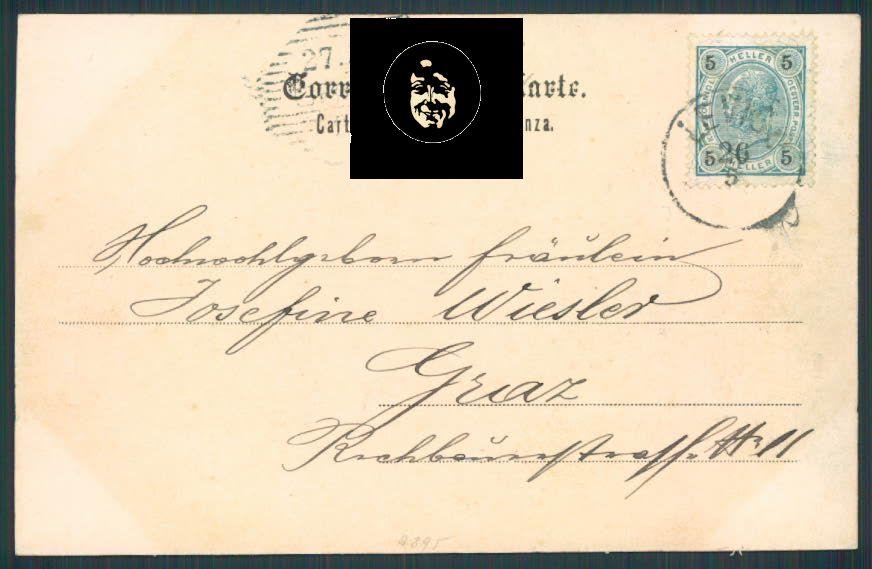 27.
Corr Karte.
Cart nza.
5 HELLER 5
5 HELLER 5
26
5
Hochwohlgeboren Fräulein
Josefine Wiesler
Graz
Rechbauerstrasse Nr 11
A895